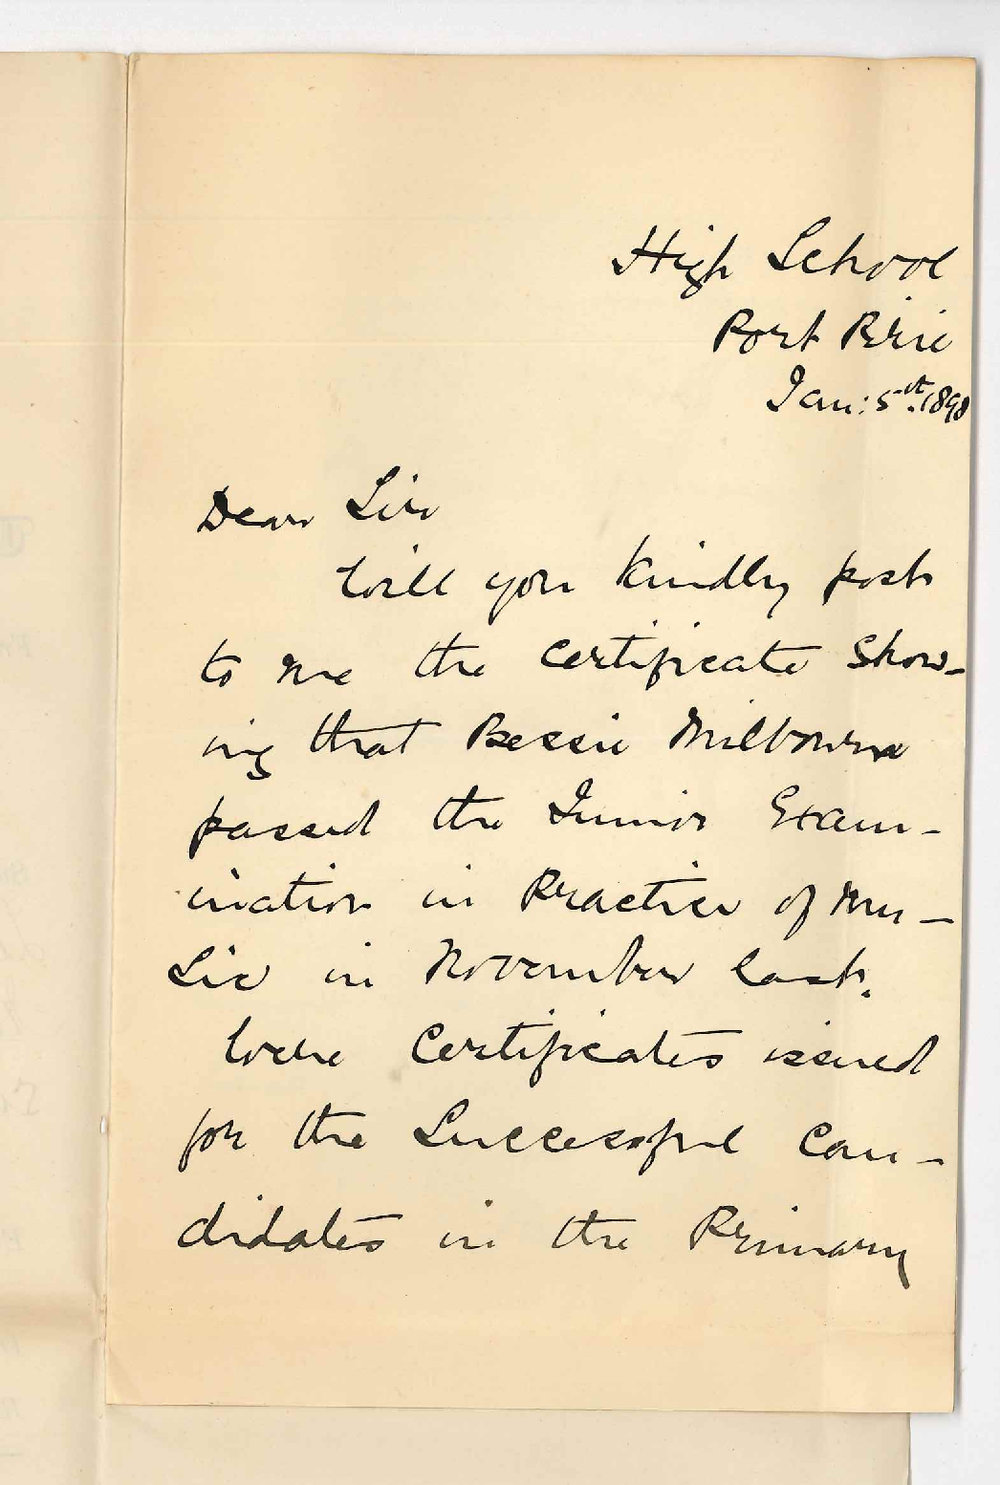 High School
Port Pirie
Jan: 5th. 1898
Dear Sir
Will you kindly post
to me the certificate show-
ing that Bessie Milbourne
passed the Junior Exam-
ination in Practice of Mu-
sic in November last.
Were Certificates issued
for the successful can-
didates in the Primary